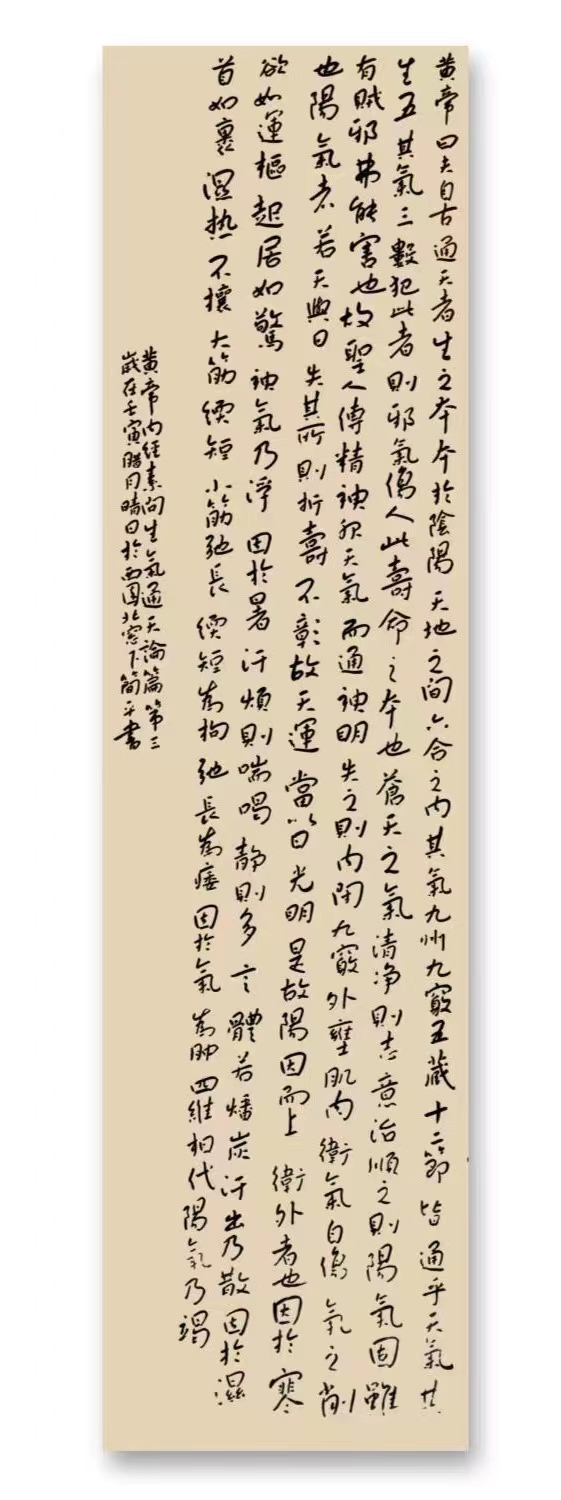 黄帝曰夫自古通天者生之本本於陰陽天地之间六合之内其氣九州九竅五藏十二節皆通乎天氣其
生五其氣三數犯此者則邪氣傷人此壽命之本也蒼天之氣清净則志意治順之則陽氣固雖
有賊邪弗能害也故聖人傳精神服天氣而通神明失之則内闭九竅外壅肌肉衛氣自傷氣之削
也陽氣者若天與日失其所則折壽不彰故天運當以日光明是故陽因而上衛外者也因於寒
欲如運樞起居如驚神氣乃浮因於暑汗煩則喘喝静則多言體若燔炭汗出乃散因於濕
首如裹濕热不攘大筋緛短小筋弛長緛短為拘弛長為痿因於氣為腫四維相代陽氣乃竭
黄帝内经素问生氣通天論篇第三
歲在壬寅腊月晴日於西園北窓下简平書